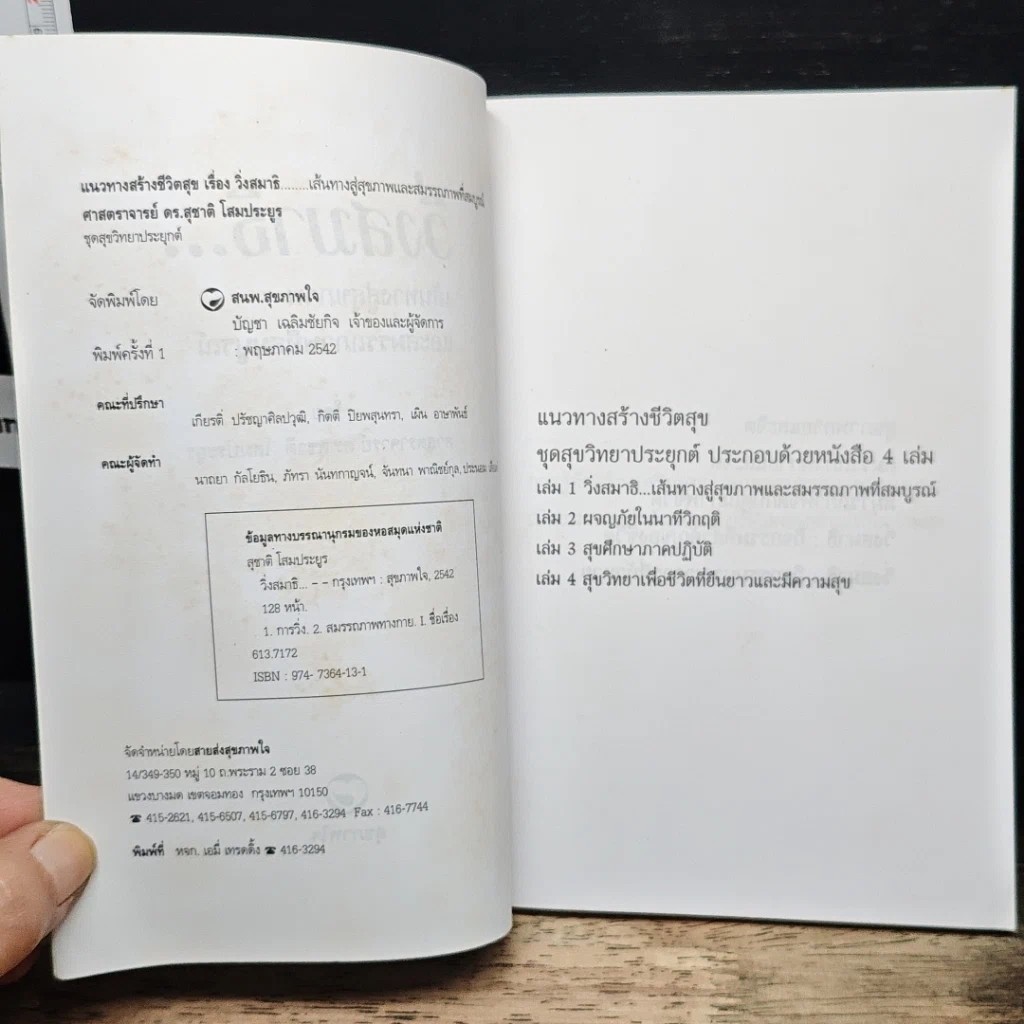 แนวทางสร้างชีวิตสุข เรื่อง วิ่งสมาธิ........เส้นทางสู่สุขภาพและสมรรถภาพที่สมบูรณ์
ศาสตราจารย์ ดร.สุชาติ โสมประยูร
ชุดสุขวิทยาประยุกต์
จัดพิมพ์โดย สนพ.สุขภาพใจ
บัญชา เฉลิมชัยกิจ เจ้าของและผู้จัดการ
พิมพ์ครั้งที่ 1 : พฤษภาคม 2542
คณะที่ปรึกษา
เกียรติ์ ปรัชญาศิลปวุฒิ, กิตติ์ ปิยพสุนทรา, เผิน อาษาพันธ์
คณะผู้จัดทำ
นาถยา กัลโยธิน, ภัทรา นันทกาญจน์, จันทนา พาณิชย์กุล,
ข้อมูลทางบรรณานุกรมของหอสมุดแห่งชาติ
สุชาติ โสมประยูร
วิ่งสมาธิ... – – กรุงเทพฯ : สุขภาพใจ, 2542
128 หน้า.
1. การวิ่ง. 2. สมรรถภาพทางกาย. I. ชื่อเรื่อง
613.7172
ISBN : 974- 7364-13-1
จัดจำหน่ายโดยสายส่งสุขภาพใจ
14/349-350 หมู่ 10 ถ.พระราม 2 ซอย 38
แขวงบางมด เขตจอมทอง กรุงเทพฯ 10150
☎ 415-2621, 415-6507, 415-6797, 416-3294 Fax : 416-7744
พิมพ์ที่ หจก. เอมี่ เทรดดิ้ง ☎ 416-3294
แนวทางสร้างชีวิตสุข
ชุดสุขวิทยาประยุกต์ ประกอบด้วยหนังสือ 4 เล่ม
เล่ม 1 วิ่งสมาธิ...เส้นทางสู่สุขภาพและสมรรถภาพที่สมบูรณ์
เล่ม 2 ผจญภัยในนาทีวิกฤติ
เล่ม 3 สุขศึกษาภาคปฏิบัติ
เล่ม 4 สุขวิทยาเพื่อชีวิตที่ยืนยาวและมีความสุข